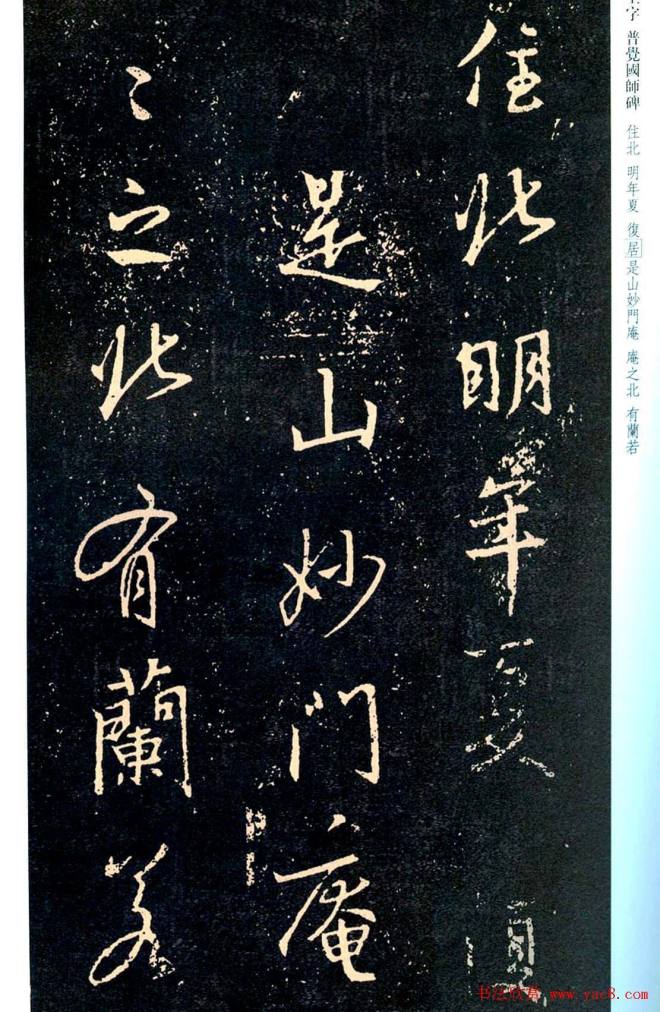 字 普覺國師碑 住北 明年夏 復[居]是山妙門庵 庵之北 有蘭若
住北明年夏
是山妙門庵
〻之北有蘭若
书法欣赏 www.yac8.com